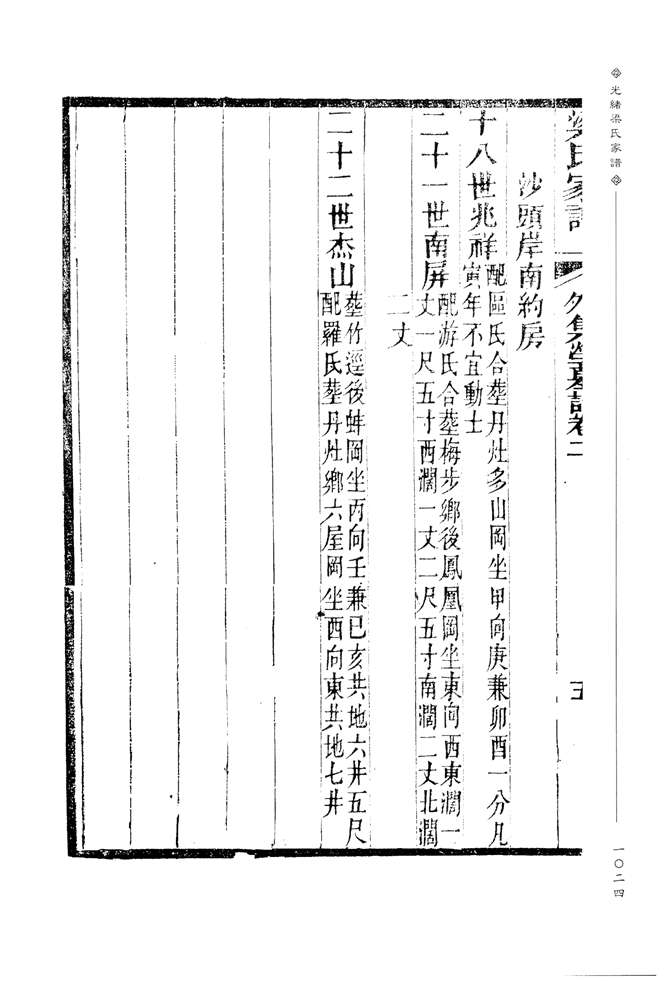 光緒梁氏家譜
一〇二四
梁氏家譜 外集塋墓譜卷二 五
沙頭岸南約房
十八世兆祥 配區氏合塟丹灶多山岡坐甲向庚兼卯酉一分凡
寅年不宜動土
二十一世南屏 配游氏合塟梅步鄉後鳳凰岡坐東向西東濶一
丈一尺五寸西濶一丈二尺五寸南濶二丈北濶
二丈
二十二世杰山 塟竹逕後蚌岡坐丙向壬兼巳亥共地六井五尺
配羅氏塟丹灶鄉六屋岡坐西向東共地七井